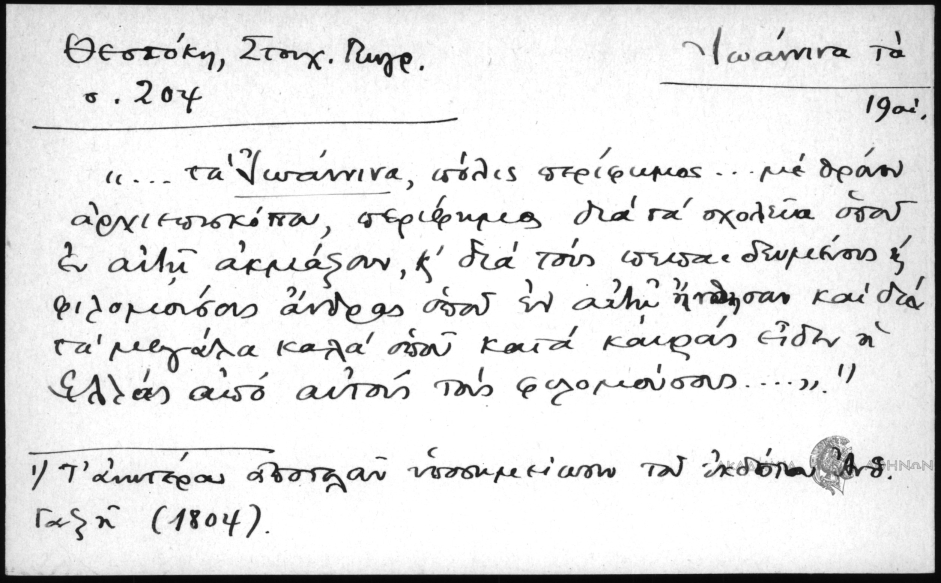 Θεοτόκη, Στοιχ. Γεωγρ.
σ. 204
Ἰωάννινα τὰ
19 αἰ.
"... τὰ Ἰωάννινα, πόλις περίφημος ... μὲ θρόνον
ἀρχιεπισκόπου, περίφημος διὰ τὰ σχολεῖα ὁποῦ
ἐν αὐτῇ ἀκμάζουν, κ' διὰ τοὺς πεπαιδευμένους κ'
φιλομούσους ἄνδρας ὁποῦ ἐν αὐτῇ ἤνθησαν καὶ διὰ
τὰ μεγάλα καλὰ ὁποῦ κατὰ καιροὺς εἶδεν ἡ
Ἑλλὰς ἀπὸ αὐτοὺς τοὺς φιλομούσους ....". 1)
1) Τ' ἀνωτέρω ἀποτελοῦν ὑποσημείωσιν τοῦ ἐκδότου Ἀνθ.
Γαζῆ (1804).
ΑΚΑΔΗΜΙΑ ΑΘΗΝΩΝ